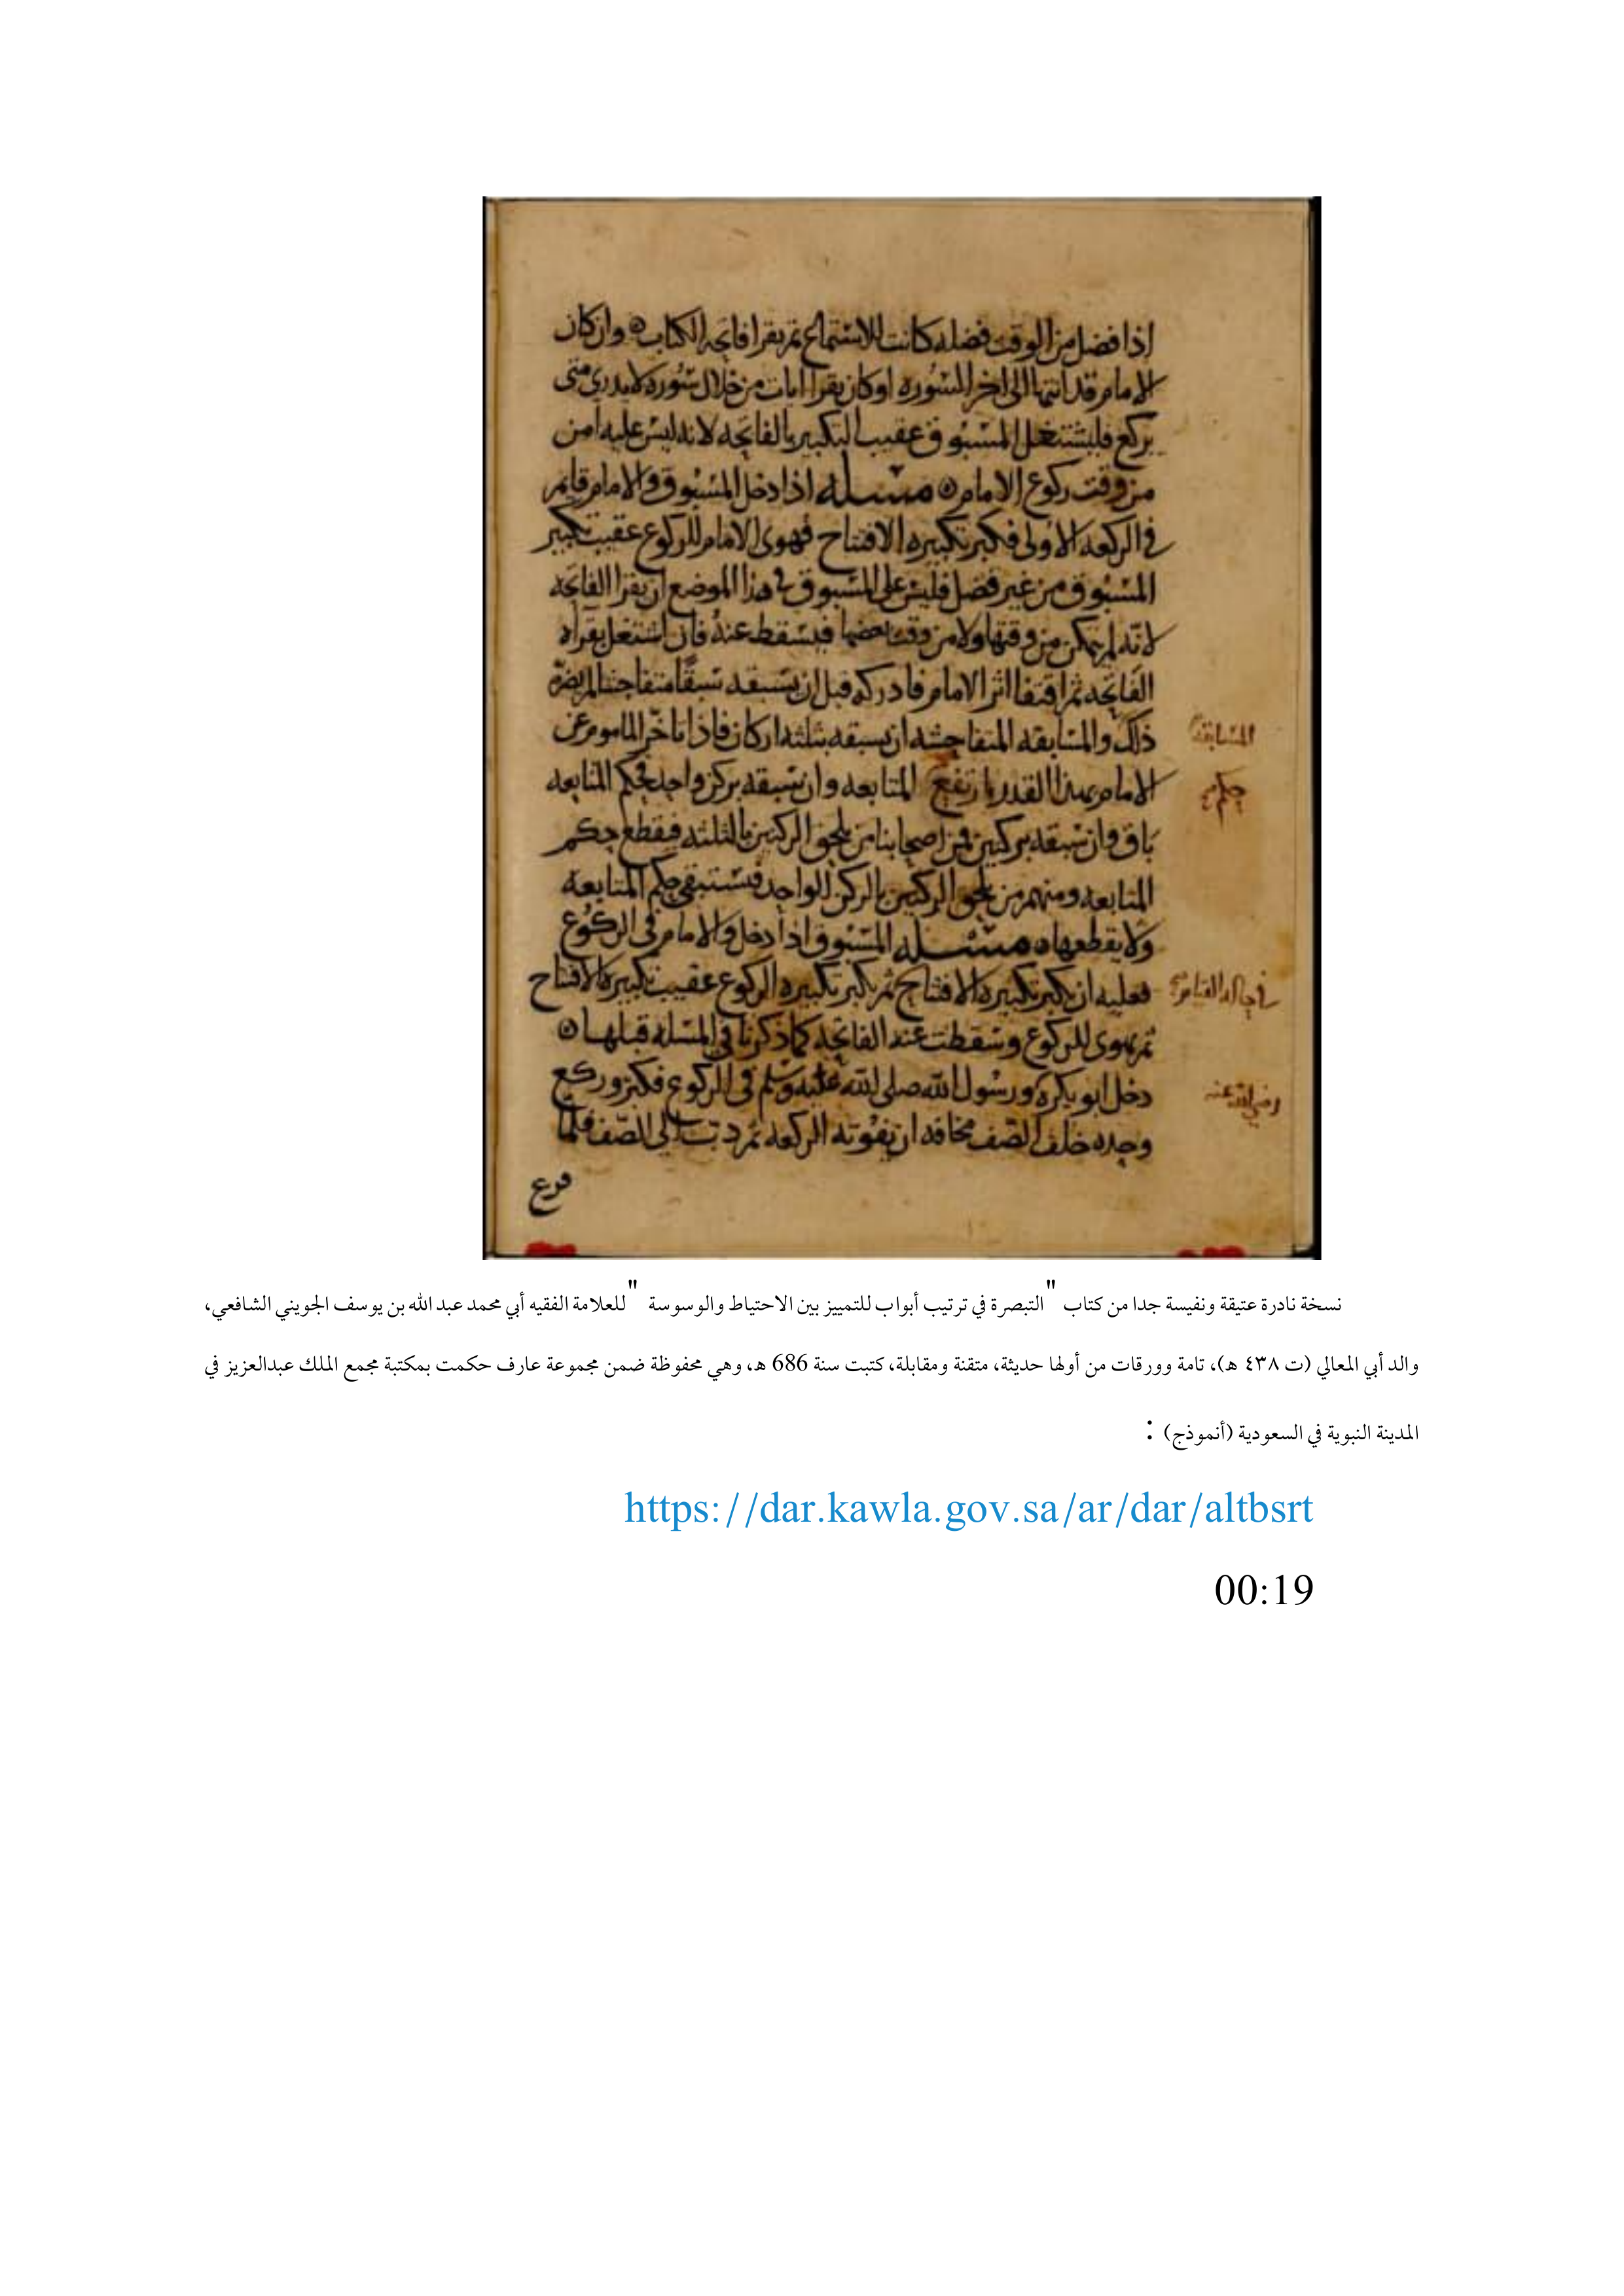 اذا فضل من الوقت فضله كانت للاستماع ثم يقرا فاتحه الكتاب ٥ وان كان
الامام قد انتها الى اخر السوره او كان يقرا ايات من خلال سوره لا يدرى متى
يركع فليشتغل المسبوق عقيب التكبير بالفاتحه لانه ليس على امن
من وقت ركوع الامام ٥ مسله اذا دخل المسبوق والامام قايم
فى الركعه الاولى فكبر تكبيره الافتتاح فهوى الامام للركوع عقيب تكبير
المسبوق من غير فضل فليس على المسبوق فى هذا الموضع ان يقرا الفاتحه
لانه لم يتمكن من وقتها ولا من وقت بعضها فيسقط عنه فان اشتغل بقراه
الفاتحه ثم اقتفا اثر الامام فادركه قبل ان يسبقه سبقًا متفاحشا لم يضره
ذلك والمسابقه المتفاحشه ان يسبقه بثلثه اركان فاذا تاخر الماموم عن
المسابقة
الامام بهذا القدر ارتفع المتابعه وان سبقه بركن واحد فحكم المتابعه
حكم
باق وان سبقه بركنين فمن اصحابنا من يلحق الركنين بالثلثه فيقطع حكم
المتابعه ومنهم من يلحق الركنين بالركن الواحد فيستبقى حكم المتابعه
ولا يقطعها ٥ مسله المسبوق اذا دخل والامام فى الركوع
فعليه ان يكبر تكبيره الافتتاح ثم يكبر تكبيره الركوع عقيب تكبيره الافتتاح
فى حاله القيام
ثم يهوى للركوع وسقطت عنه الفاتحه كما ذكرنا فى المسله قبلها ٥
دخل ابو بكره ورسول الله صلى الله عليه وسلم فى الركوع فكبر وركع
رضى الله عنه
وحده خلف الصف مخافه ان يفوته الركعه ثم دب الى الصف فلما
فرغ
نسخة نادرة عتيقة ونفيسة جدا من كتاب "التبصرة في ترتيب أبواب للتمييز بين الاحتياط والوسوسة " للعلامة الفقيه أبي محمد عبد الله بن يوسف الجويني الشافعي،
والد أبي المعالي (ت ٤٣٨ هـ)، تامة وورقات من أولها حديثة، متقنة ومقابلة، كتبت سنة 686 هـ، وهي محفوظة ضمن مجموعة عارف حكمت بمكتبة مجمع الملك عبدالعزيز في
المدينة النبوية في السعودية (أنموذج) :
https://dar.kawla.gov.sa/ar/dar/altbsrt
00:19